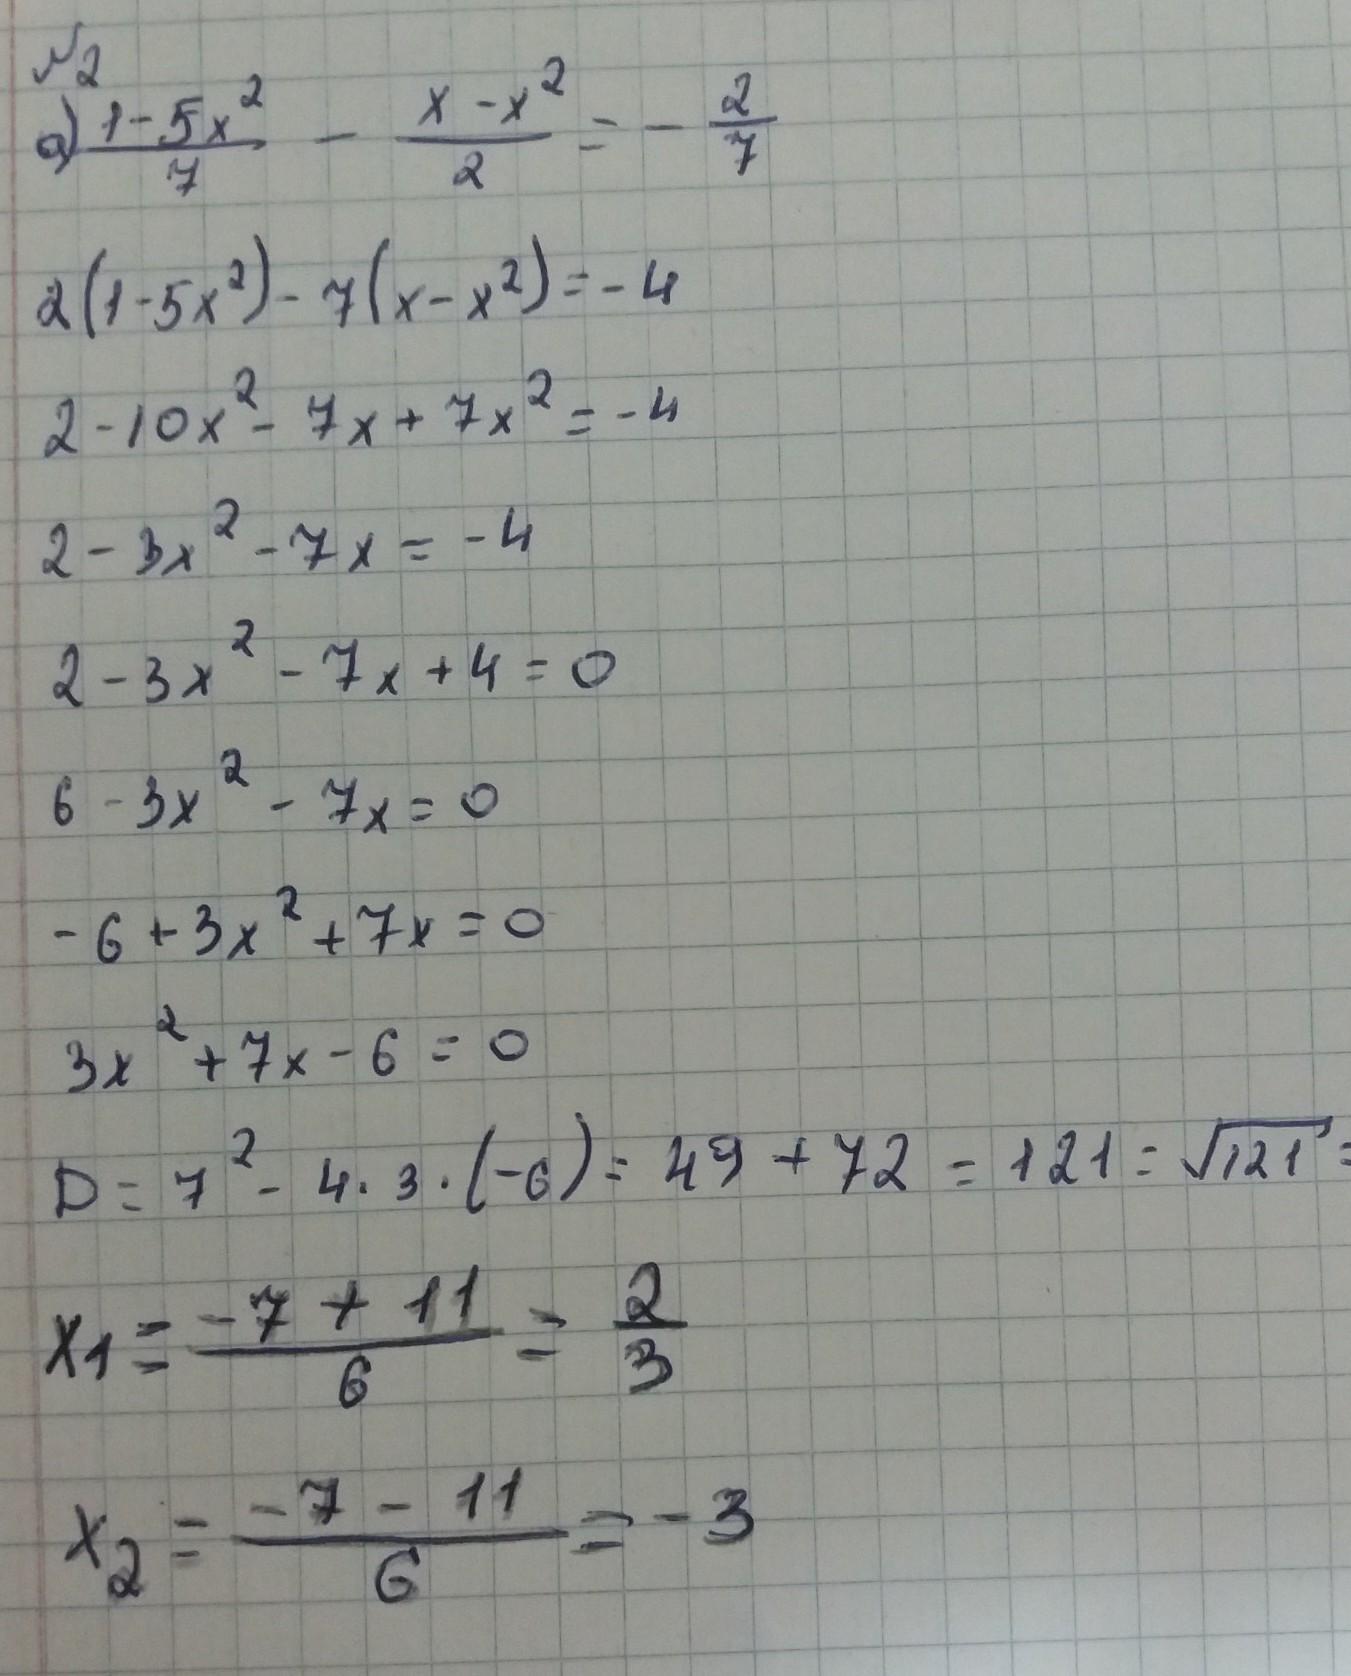 №2
а) (1-5x²)/7 - (x-x²)/2 = - 2/7
2(1-5x²)-7(x-x²)=-4
2-10x²-7x+7x²=-4
2-3x²-7x=-4
2-3x²-7x+4=0
6-3x²-7x=0
-6+3x²+7x=0
3x²+7x-6=0
D=7²-4·3·(-6)=49+72=121=√121=
x₁=(-7+11)/6=2/3
x₂=(-7-11)/6=-3